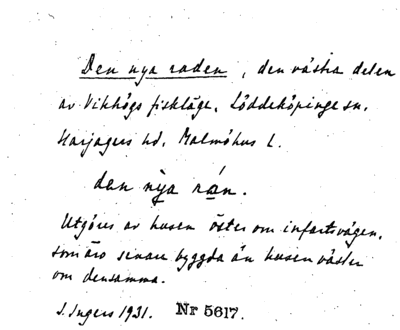 Den nya raden, den västra delen
av Vikhögs fiskläge. Löddeköpinge sn.
Harjagers hd. Malmöhus l.
den nỳa rán.
Utgöres av husen öster om infartsvägen,
som äro senare byggda än husen väster
om densamma.
S. Ingers 1931. Nr 5617.